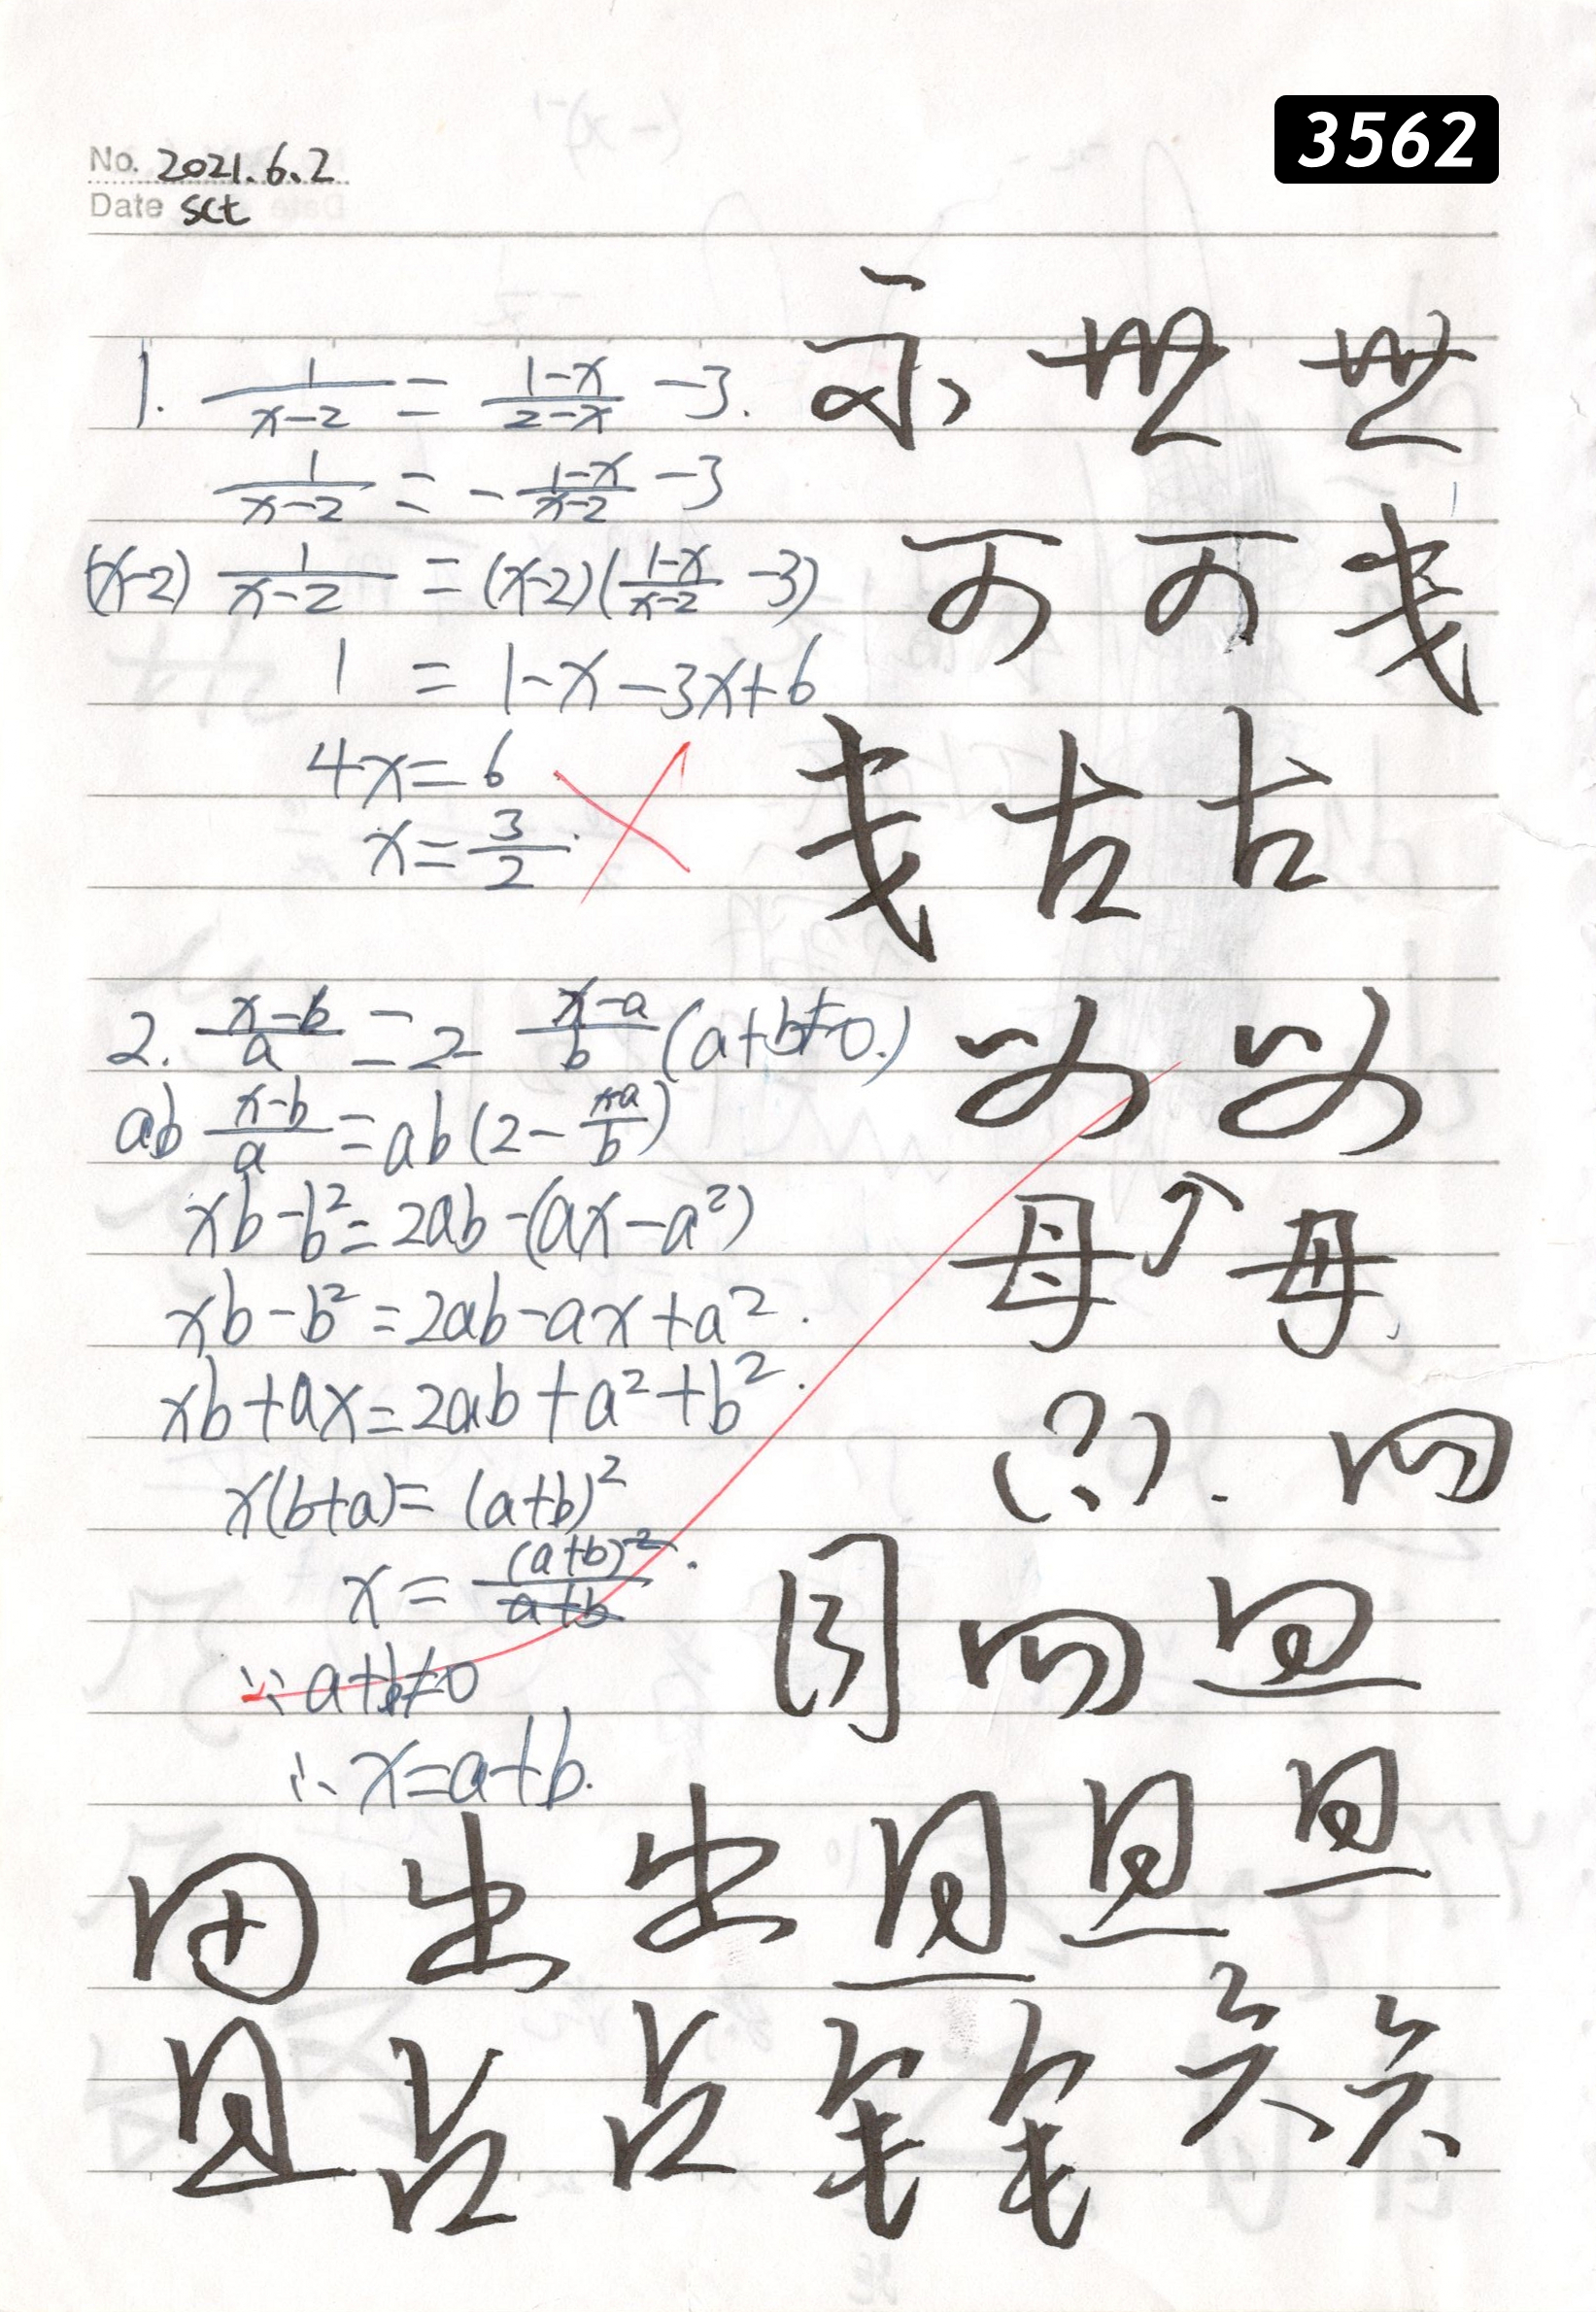 3562
No. 2021.6.2
Date sct
1. 1/(x-2) = (1-x)/(2-x) -3.
1/(x-2) = - (1-x)/(x-2) -3
(x-2) 1/(x-2) = (x-2)((1-x)/(x-2) -3)
1 = 1-x-3x+6
4x=6
x=3/2.
2. (x-b)/a = 2- (x-a)/b (a+b≠0.)
ab (x-b)/a = ab(2- (x-a)/b)
xb-b²=2ab-(ax-a²)
xb-b²=2ab-ax+a².
xb+ax=2ab+a²+b².
x(b+a)=(a+b)²
x=(a+b)²/(a+b).
∵a+b≠0
∴x=a+b.
世 世
可 可
古 古
以 以
母 母
四
四
田 出 出
占 占
六 六